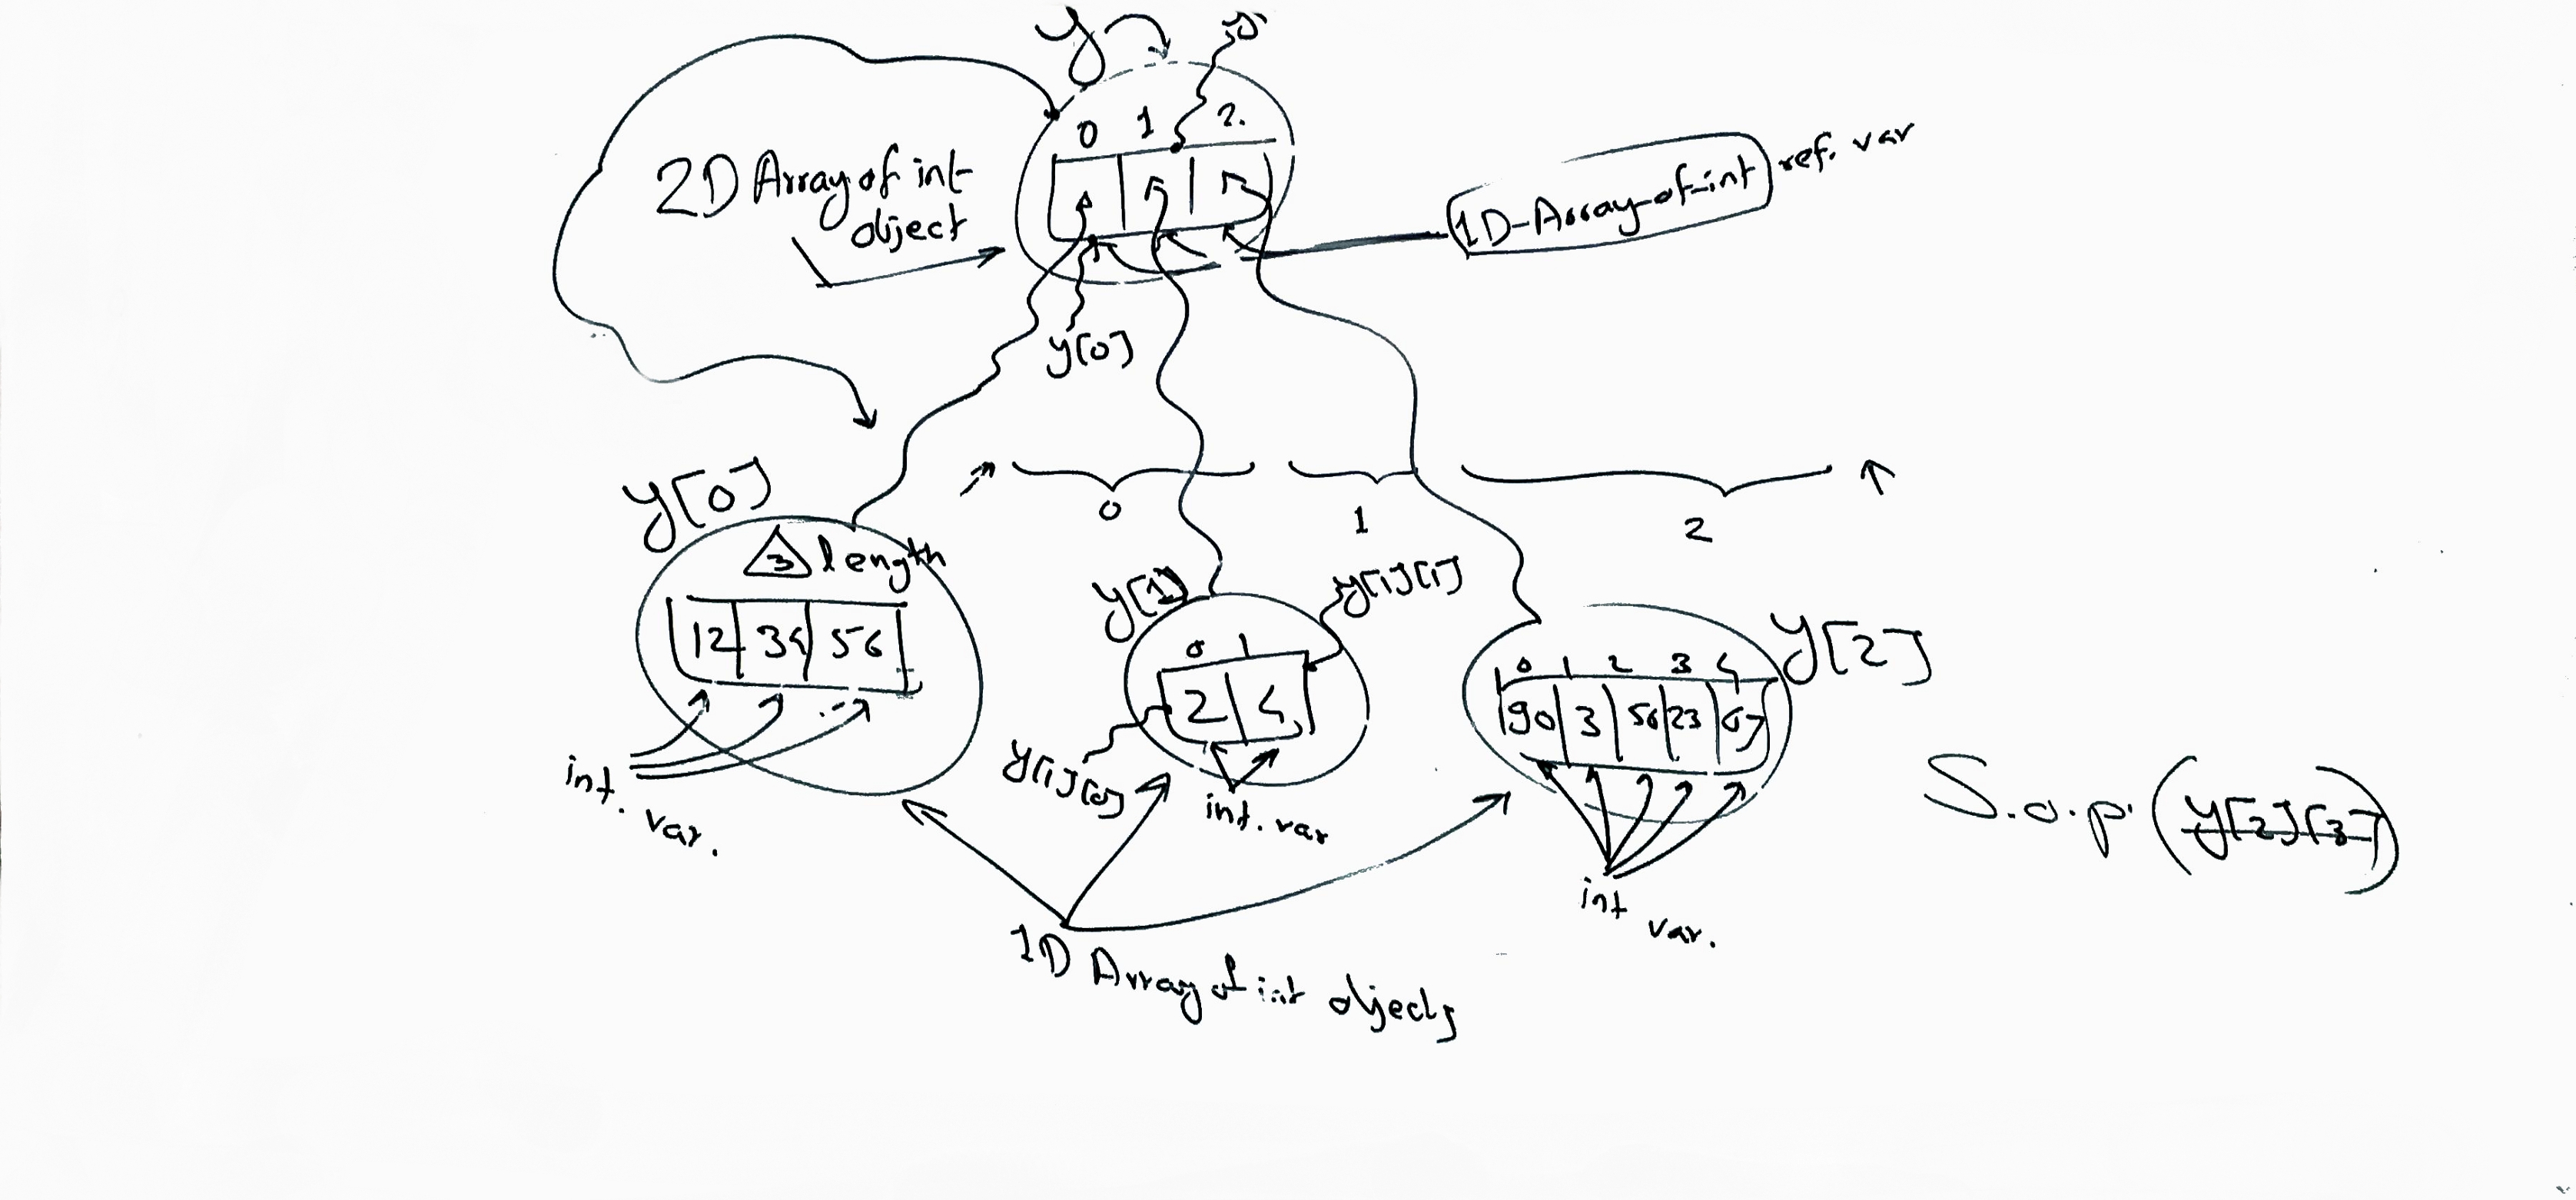 y
0 1 2.
2D Array of int
object
1D-Array-of-int ref. var
y[0]
0 1 2
y[0]
3 length
12 34 56
int. var.
y[1]
y[1][1]
0 1
2 4
y[1][0]
int. var
y[2]
0 1 2 3 4
90 3 56 23 67
int var.
1D Array of int objects
S.o.p. (y[2][3])